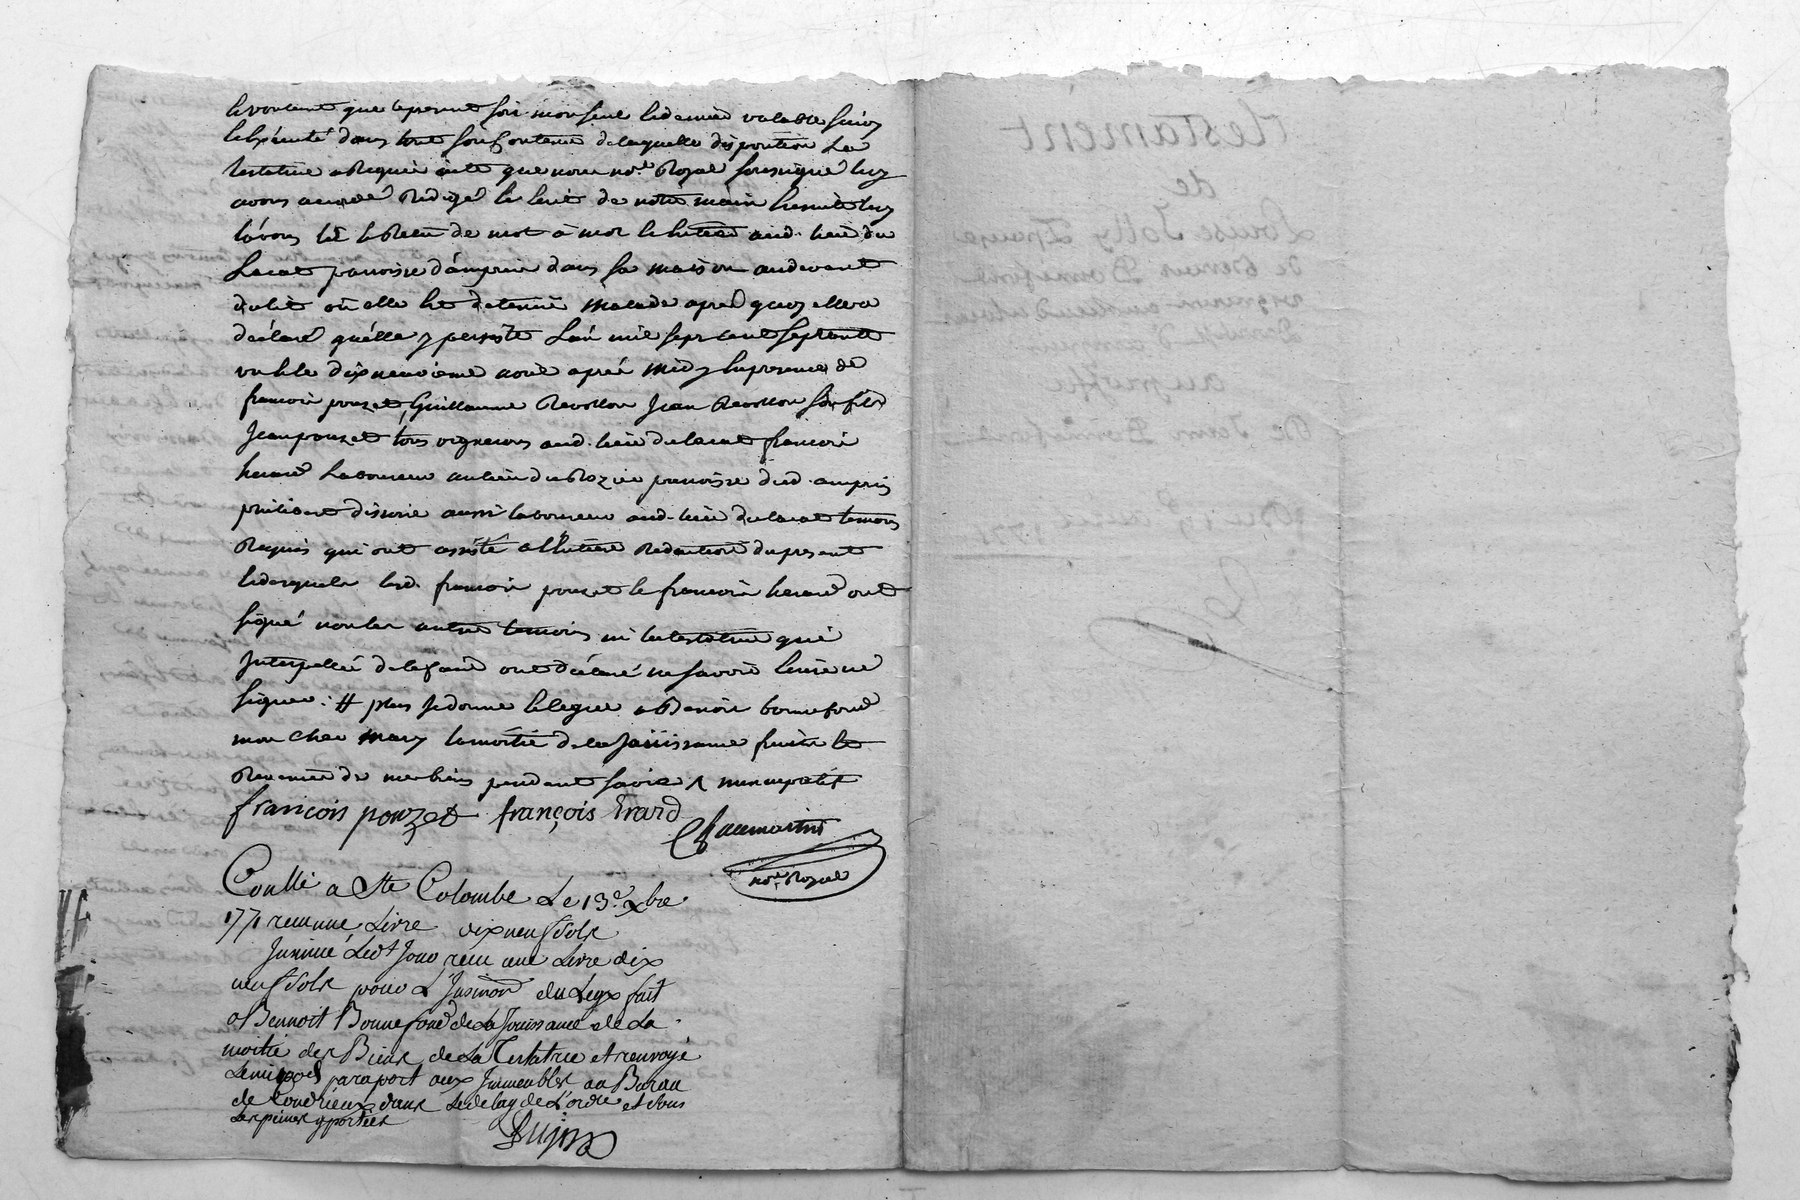 le voulant que le present soit mon seul & dernier valable suivy
& éxécuté dans tout son contenu de laquelle disposition La
testatrice a Requis acte que nous no.re Royal soussigné luy
avons accordé Rédigé & écrit de notre main & ensuitte luy
l'avons lû & Releu de mot à mot & hutteré aud. lieu du
Lacat parroisse d'ampuis dans sa maison au devant
du lit où elle est detenüe malade apred quoy elle a
déclaré qu'elle y persiste L'an mil sept cent septante
un & le dix neuvieme avril après midy en presence de
francois pouzet, Guillaume Revollon Jean Revollon son fils
Jean pouzet tous vignerons aud. lieu du lacat francois
herard Laboureur au lieu du Rozier parroisse dud. ampuis
aussi laboureur aud. lieu du lacat temoins
Requis qui ont assisté a l'entiere Redaction du present
& desquels lesd. francois pouzet & francois herard ont
signé non les autres temoins ni la testatrice qui
Interpellés de le faire ont déclaré ne savoir écrire ne
signer: # plus je donne & legue a Benoit bonnefond
mon cher mary la moitié de la Jouissance fruits &
Revenus de mes biens pendant sa vie nuncupatif
francois pouzet françois Erard
Chaumartin
no.re Royal
Conllé a Ste Colombe Le 13.e Xbre
1771 reçu une Livre dix neuf sols
Jnsinué Led.t Jour reçu une Livre dix
neuf sols pour L'Jnsinon du Legs fait
a Bennoit Bonnefond de La Jouissance de La
moitié des Biens de La Testatrice et renvoyé
par raport aux Jmmeubles au Bureau
de Condrieux dans Le delay de L'ordre et sous
Les peines y portées
Testament
de
Louise Jolly Epouse
de Benoit Bonnefond
vigneron au lieu du lacat
Parroisse d'ampuis
au proffit
De Jean Bonnefond
Du 19 avril 1771